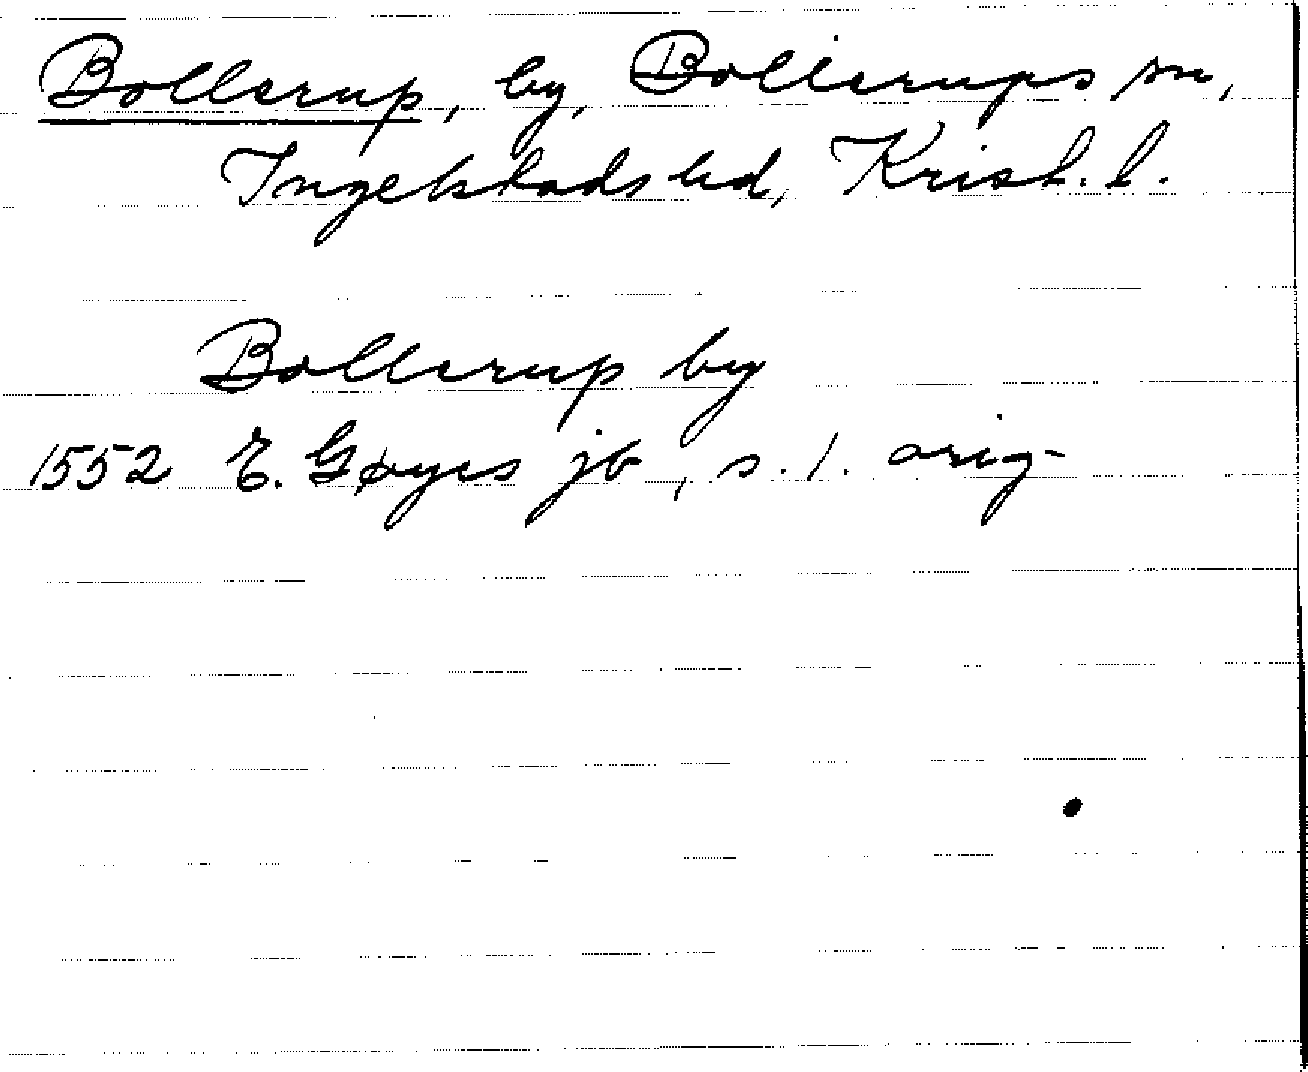 Bollerup, by, Bollerups sn,
Ingelstads hd, Krist. l.
Bollerup by
1552 E. Gøyes jb, s. 1. orig